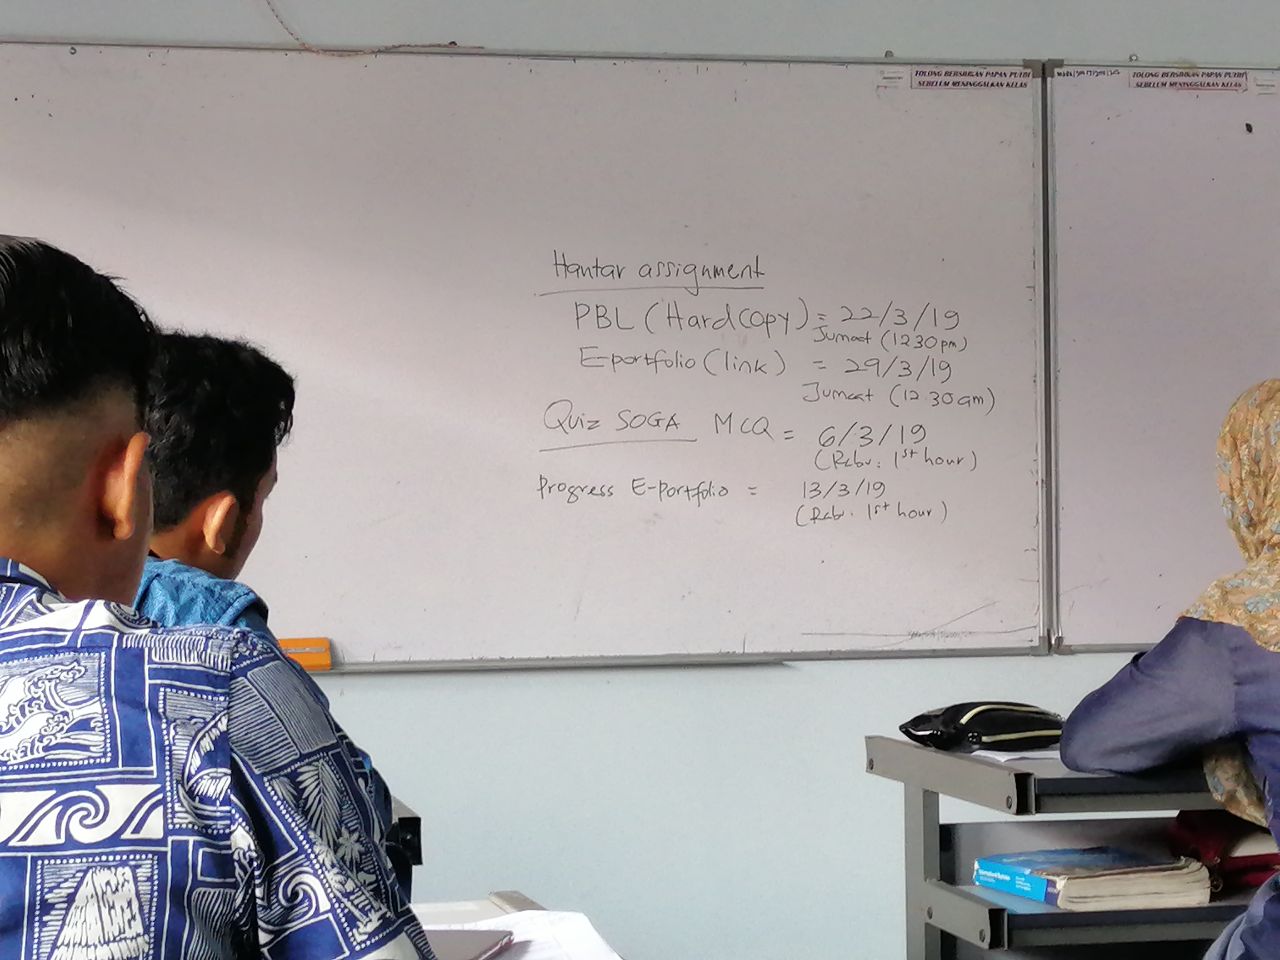 TOLONG BERSIHKAN PAPAN PUTIH
SEBELUM MENINGGALKAN KELAS
TOLONG BERSIHKAN PAPAN PUTIH
SEBELUM MENINGGALKAN KELAS
Hantar assignment
PBL (Hardcopy) = 22/3/19
Jumaat (1230 pm)
E-portfolio (link) = 29/3/19
Jumaat (12.30 am)
Quiz SOGA MCQ = 6/3/19
(Rabu : 1st hour)
Progress E-Portfolio = 13/3/19
(Rabu . 1st hour)